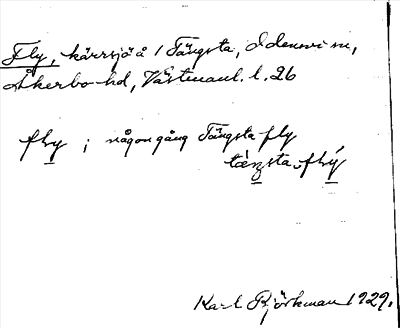 Fly, kärrsjö å / Tängsta, Odensvi sn,
Åkerbo hd, Västmanl. l. 26
fly ; någon gång Tängsta fly
tæŋsta flý
Karl Björkman 1929.